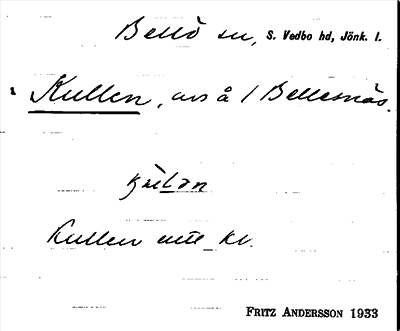 Bellö sn, S. Vedbo hd, Jönk. l.
Kullen, avs å / Bellesnäs.
Kullen utt Kv.
FRITZ ANDERSSON 1933